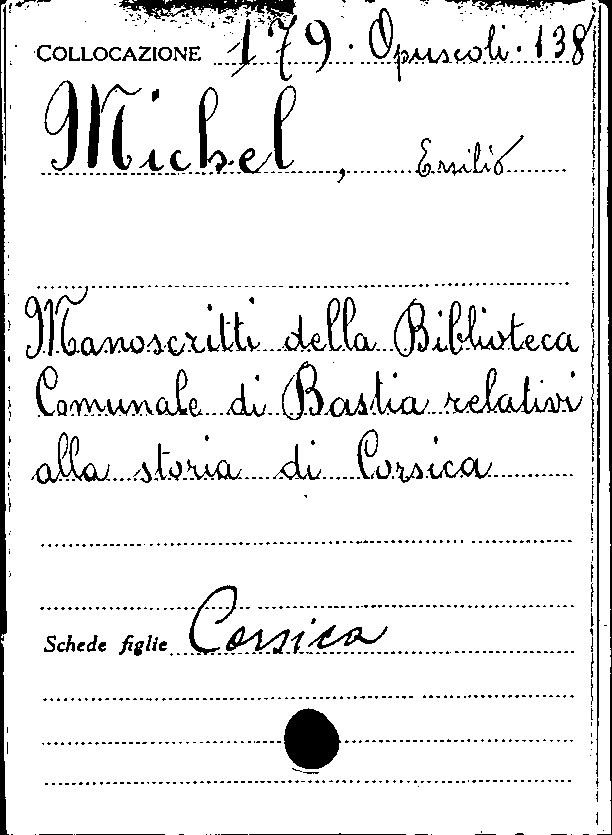 COLLOCAZIONE 179. Opuscoli. 138
Michel, Ersilio
Manoscritti della Biblioteca
Comunale di Bastia relativi
alla storia di Corsica
Schede figlie Corsica